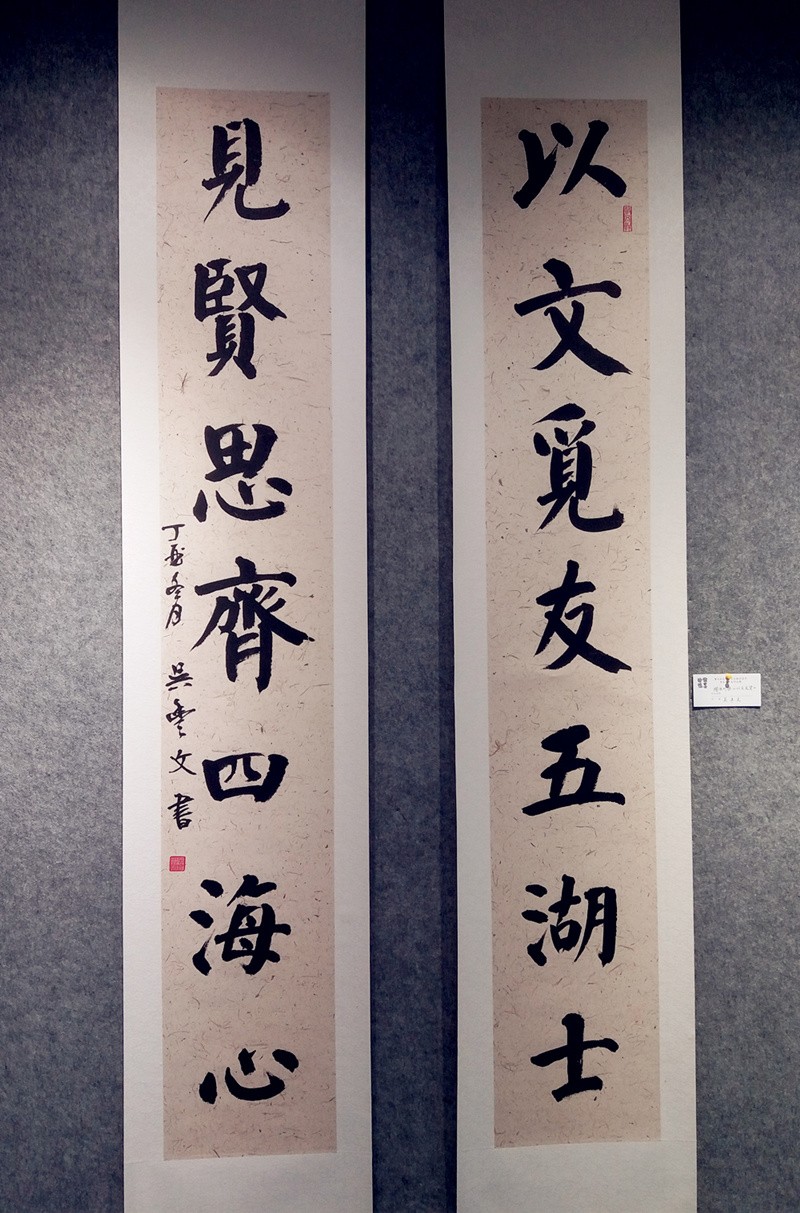 以文覓友五湖士
見賢思齊四海心
丁酉冬月 吳雲文書